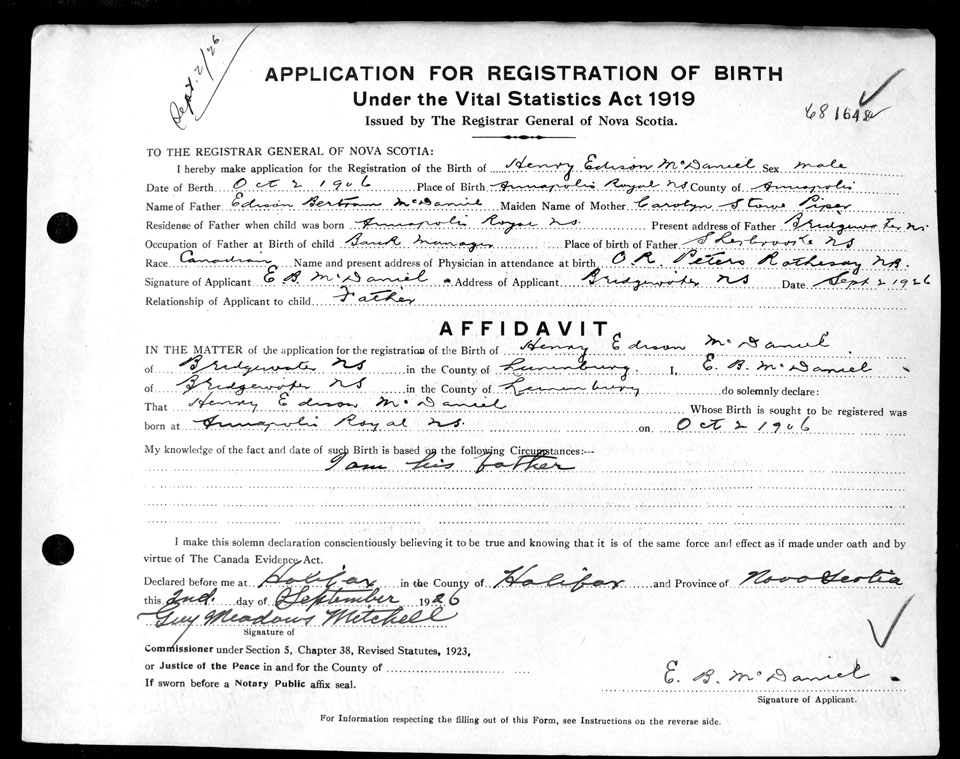 Sept. 2/26
APPLICATION FOR REGISTRATION OF BIRTH
Under the Vital Statistics Act 1919
Issued by The Registrar General of Nova Scotia.
68 1648
TO THE REGISTRAR GENERAL OF NOVA SCOTIA:
I hereby make application for the Registration of the Birth of Henry Edison McDaniel Sex male
Date of Birth Oct 2 1906 Place of Birth Annapolis Royal NS County of Annapolis
Name of Father Edison Bertram McDaniel Maiden Name of Mother Carolyn Stowe Piper
Residense of Father when child was born Annapolis Royal NS. Present address of Father Bridgewater NS
Occupation of Father at Birth of child Bank Manager Place of birth of Father Sherbrooke NS
Race Canadian Name and present address of Physician in attendance at birth O R. Peters Rothesay NB.
Signature of Applicant E B McDaniel Address of Applicant Bridgewater NS Date Sept 2 1926
Relationship of Applicant to child Father
AFFIDAVIT
IN THE MATTER of the application for the registration of the Birth of Henry Edison McDaniel
of Bridgewater NS in the County of Lunenburg. I, E. B. McDaniel
of Bridgewater NS in the County of Lunenburg do solemnly declare:
That Henry Edison McDaniel Whose Birth is sought to be registered was
born at Annapolis Royal NS. on Oct 2 1906
My knowledge of the fact and date of such Birth is based on the following Circumstances:--
I am his father
I make this solemn declaration conscientiously believing it to be true and knowing that it is of the same force and effect as if made under oath and by
virtue of The Canada Evidence Act.
Declared before me at Halifax in the County of Halifax and Province of Nova Scotia
this 2nd. day of September 1926
Guy Meadows Mitchell
Signature of
Commissioner under Section 5, Chapter 38, Revised Statutes, 1923,
or Justice of the Peace in and for the County of
If sworn before a Notary Public affix seal.
E. B. McDaniel
Signature of Applicant.
For Information respecting the filling out of this Form, see Instructions on the reverse side.